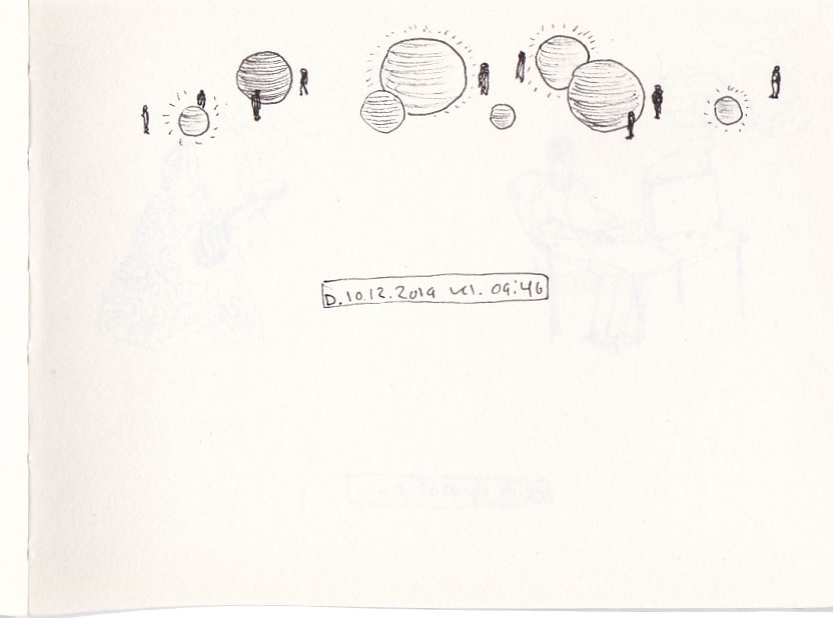 D. 10.12.2019 kl. 09:46